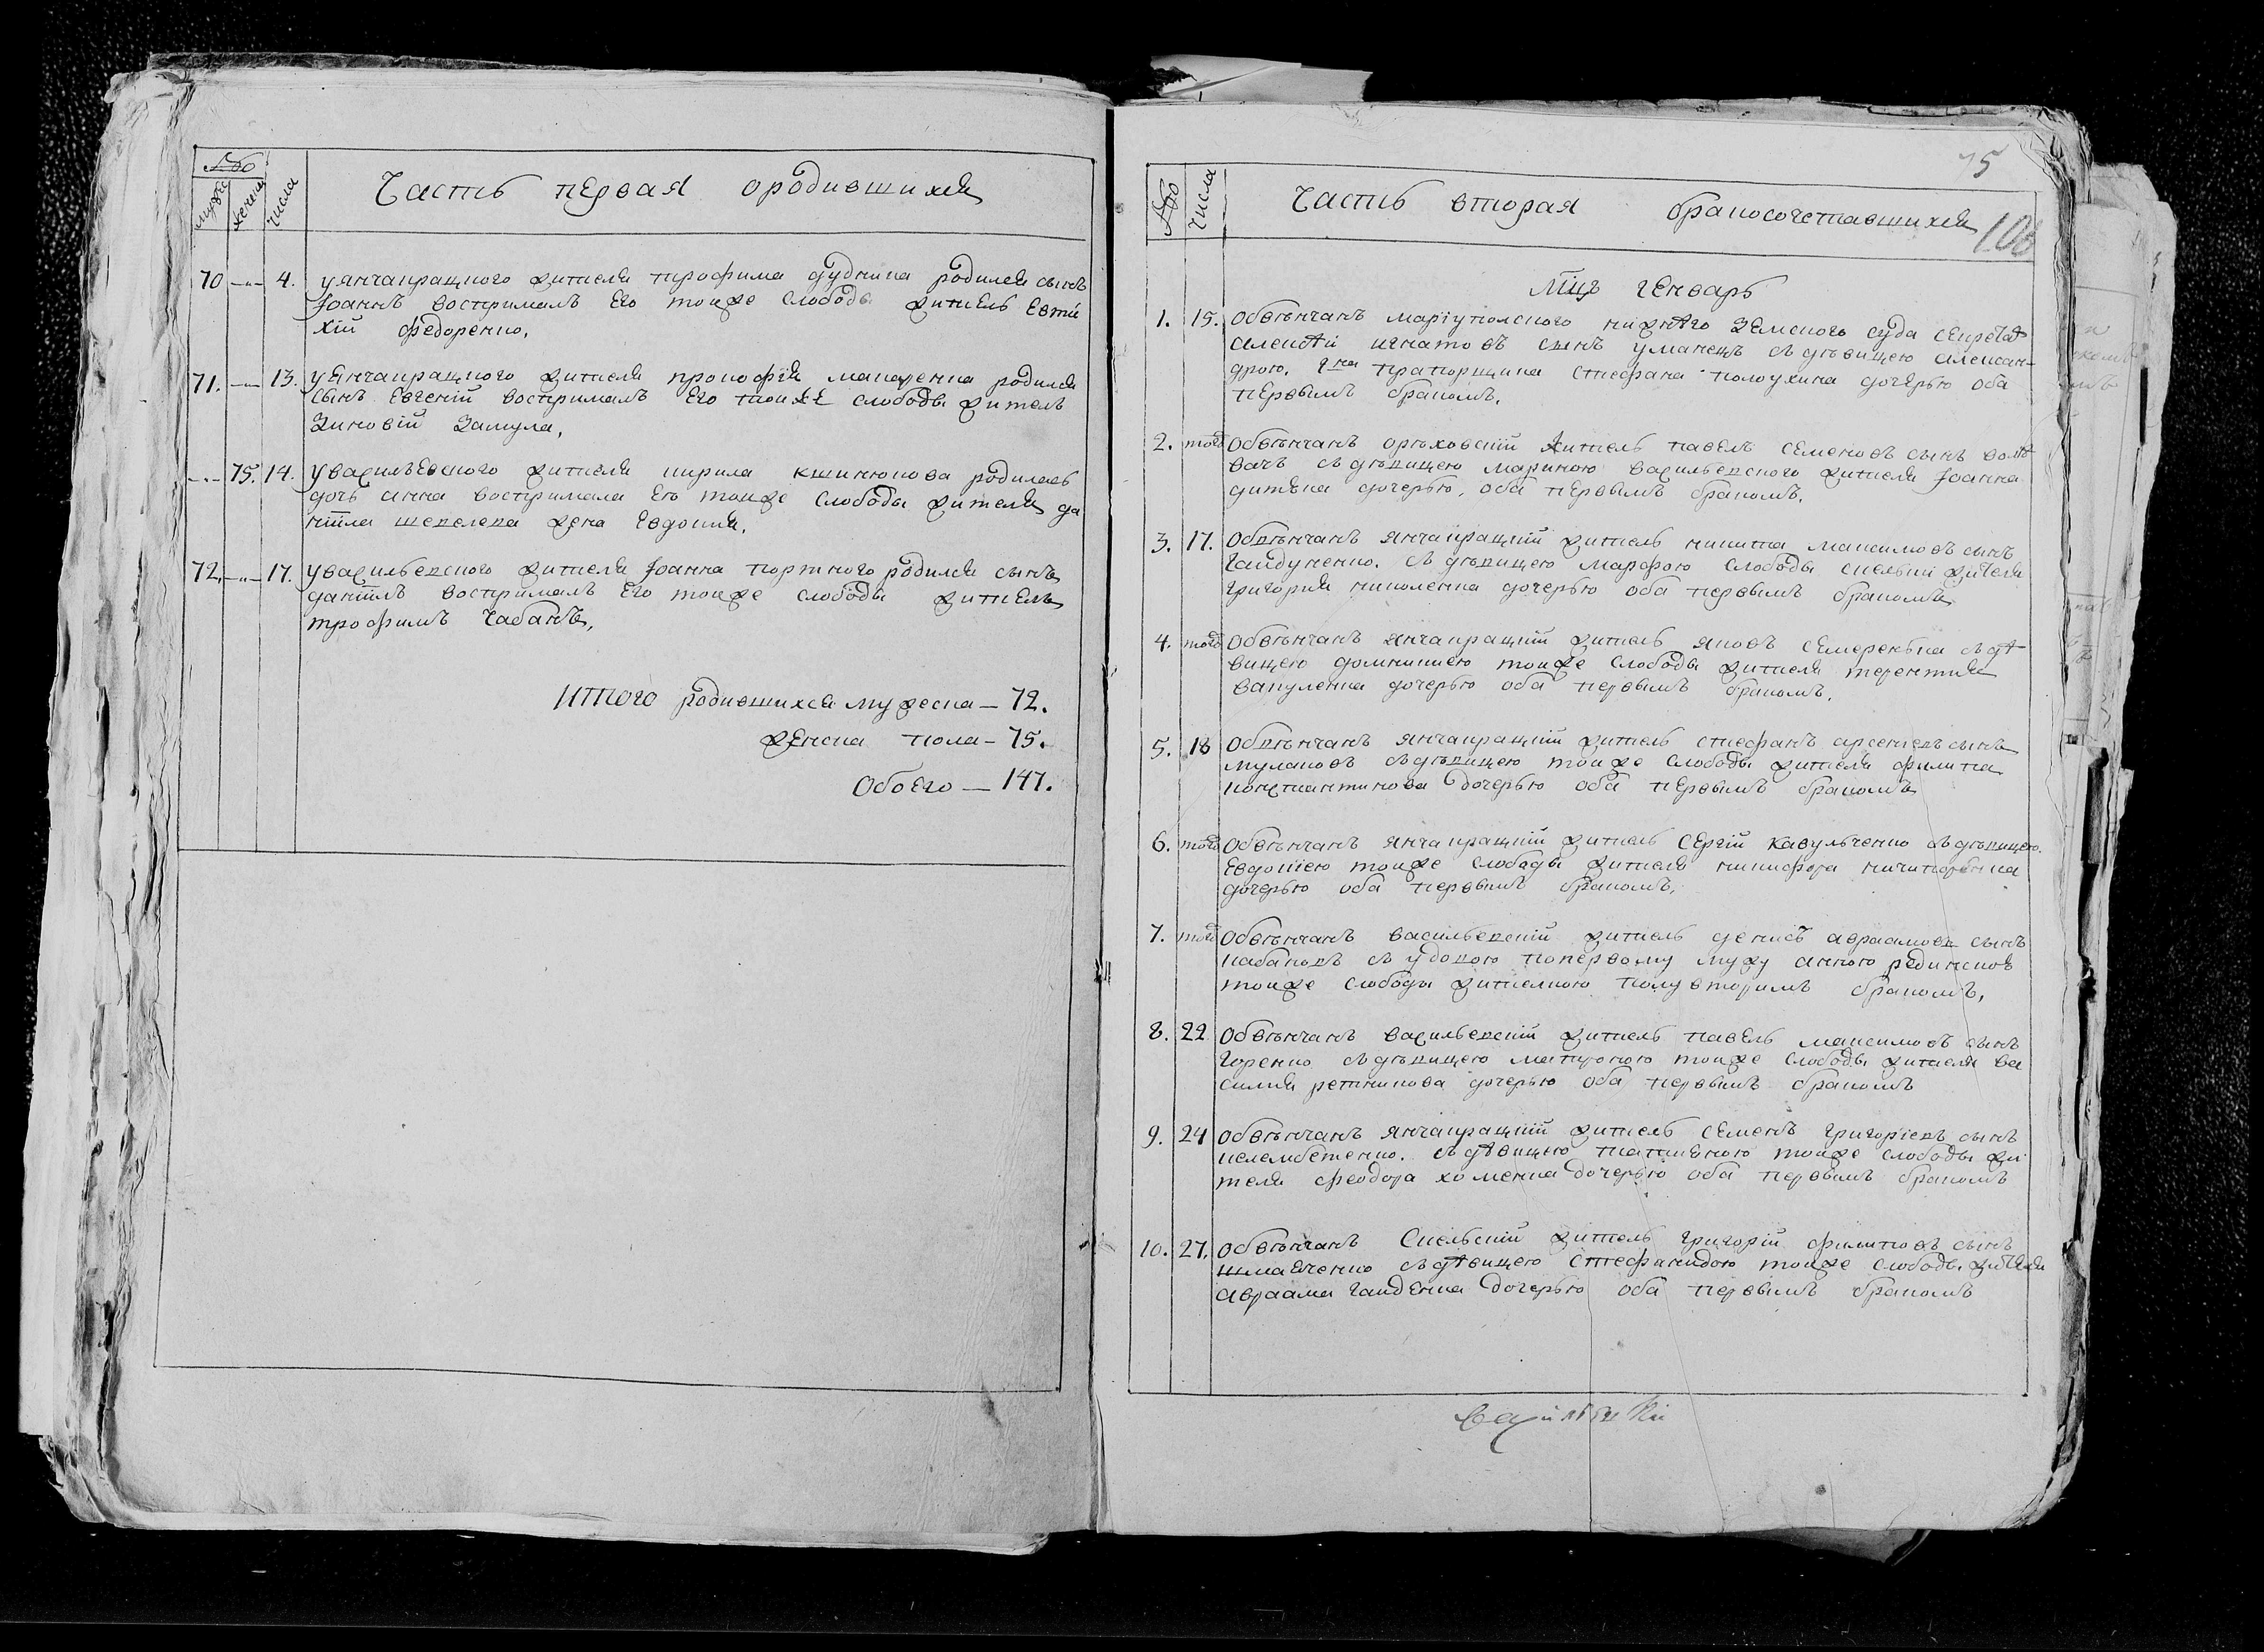 №
мужеск женск числа
Часть первая ородившихся
70 —„— 4. у янчакрацкого жителя трофима дудника родился сынъ
Іоаннъ воспрималъ Его тоиже слободы житель Евти
хій федоренко.
71. —„— 13. у Янчакрацкого жителя прокофія макаренка родился
сынъ Евгеній воспрималъ Его тоиже слободы житель
Зиновій Замула.
—„— 75. 14. у васильевского жителя кирила родилась
дочь анна воспримала Ею тоиже слободы жителя да
ніила шевелева жена Евдокия.
72. —„— 17. у васильевского жителя Іоанна портного родился сынъ
даніилъ воспрималъ Его тоиже слободы житель
трофимъ Чабанъ.
Итого родившихся мужеска — 72.
женска пола — 75.
Обоего — 147.
75
№ числа
Часть вторая бракосочетавшихся
106
Мцъ генварь
1. 15. Обвѣнчанъ маріупольского нижнѣго Земского суда секретаръ
алексѣй игнатовъ сынъ уманецъ съ дѣвицею алексан-
дрою, прапорщика стефана полоухина дочерью оба
первымъ бракомъ.
2. тогож Обвѣнчанъ орѣховскій житель павелъ семеновъ сынъ
вачъ съ дѣвицею мариною васильевского жителя Іоанна
дитька дочерью, оба первымъ бракомъ.
3. 17. Обвѣнчанъ янчакрацкій житель никита максимовъ сынъ
Гайдученко. съ дѣвицею марфою слободы скельки жителя
григория николенка дочерью оба первымъ бракомъ
4. тогож Обвѣнчанъ янчакрацкій житель яковъ семеренька съ дѣ
вицею домникиею тоиже слободы жителя терентия
вакуленка дочерью оба первымъ бракомъ.
5. 18 Обвѣнчанъ янчакрацкій житель стефанъ арсениевъ сынъ
мулановъ съ дѣвицею тоиже слободы жителя филипа
константинова дочерью оба первымъ бракомъ
6. тогож Обвѣнчанъ янчакрацкій житель Сергій Кавульченко съ дѣвицею
Евдокіею тоиже слободы жителя никифора ничипоренка
дочерью оба первымъ бракомъ.
7. тогож Обвѣнчанъ васильевскій житель денисъ авраамовъ сынъ
кабаковъ съ удовою попервому мужу анною
тоиже слободы жителкою полувторимъ бракомъ.
8. 22 Обвѣнчанъ васильевскій житель павелъ максимовъ сынъ
Горенко съ дѣвицею матроною тоиже слободы жителя ва
силия репникова дочерью оба первымъ бракомъ
9. 24 Обвѣнчанъ янчакрацкій житель семенъ григориевъ сынъ
келембетенко. съ дѣвицею татияною тоиже слободы жи
теля феодора хоменка дочерью оба первымъ бракомъ
10. 27. Обвѣнчанъ Скельскій житель григорій филиповъ сынъ
шмавченко съ дѣвицею стефанидою тоиже слободы жителя
авраама гайденка дочерью оба первымъ бракомъ